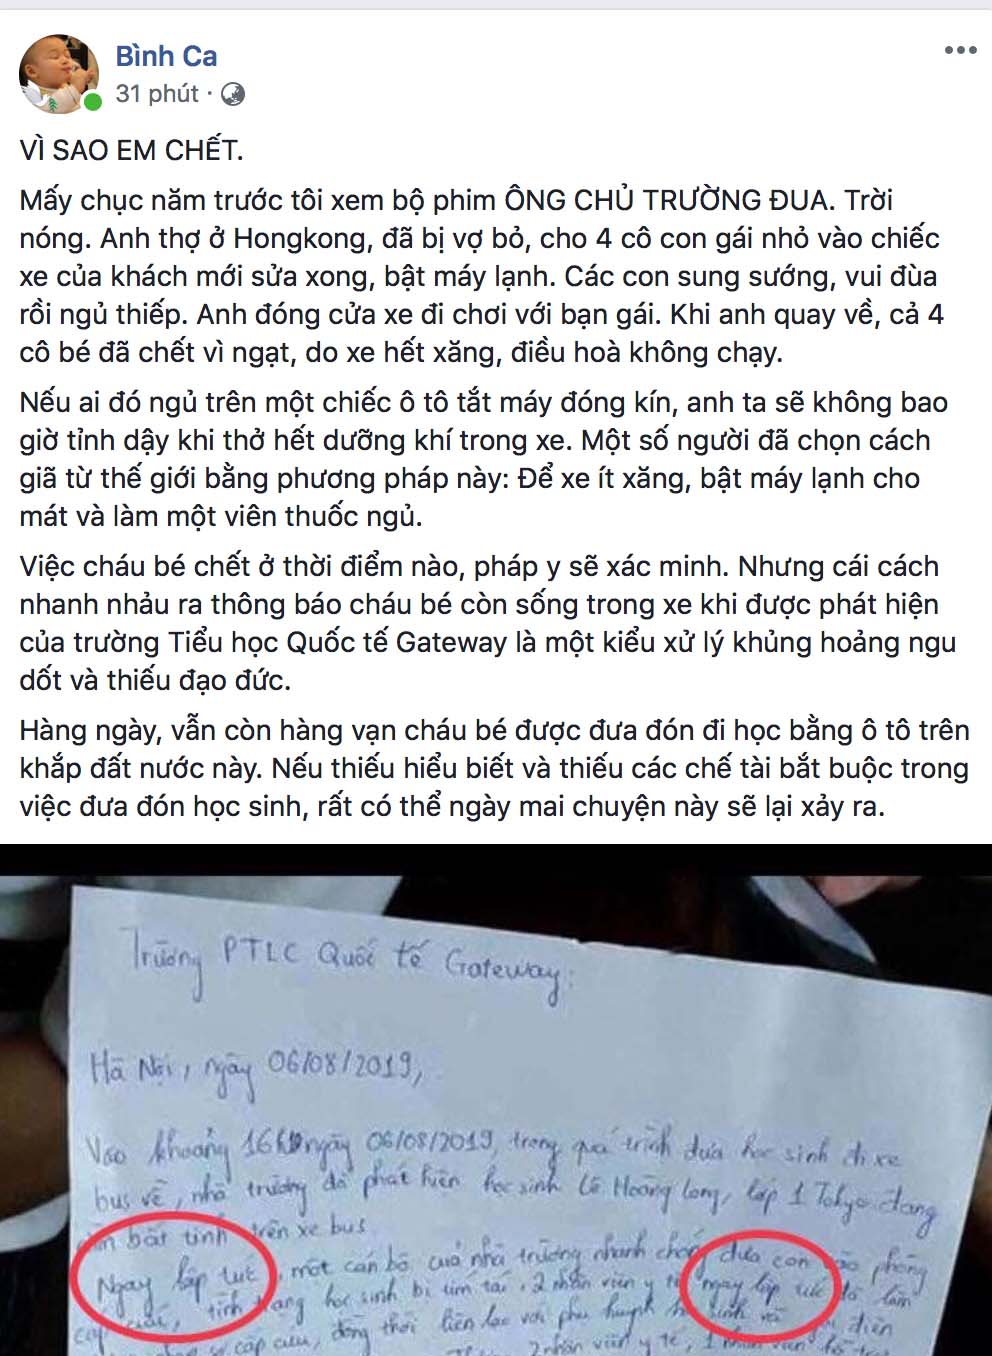 Bình Ca
31 phút ·
VÌ SAO EM CHẾT.
Mấy chục năm trước tôi xem bộ phim ÔNG CHỦ TRƯỜNG ĐUA. Trời
nóng. Anh thợ ở Hongkong, đã bị vợ bỏ, cho 4 cô con gái nhỏ vào chiếc
xe của khách mới sửa xong, bật máy lạnh. Các con sung sướng, vui đùa
rồi ngủ thiếp. Anh đóng cửa xe đi chơi với bạn gái. Khi anh quay về, cả 4
cô bé đã chết vì ngạt, do xe hết xăng, điều hoà không chạy.
Nếu ai đó ngủ trên một chiếc ô tô tắt máy đóng kín, anh ta sẽ không bao
giờ tỉnh dậy khi thở hết dưỡng khí trong xe. Một số người đã chọn cách
giã từ thế giới bằng phương pháp này: Để xe ít xăng, bật máy lạnh cho
mát và làm một viên thuốc ngủ.
Việc cháu bé chết ở thời điểm nào, pháp y sẽ xác minh. Nhưng cái cách
nhanh nhảu ra thông báo cháu bé còn sống trong xe khi được phát hiện
của trường Tiểu học Quốc tế Gateway là một kiểu xử lý khủng hoảng ngu
dốt và thiếu đạo đức.
Hàng ngày, vẫn còn hàng vạn cháu bé được đưa đón đi học bằng ô tô trên
khắp đất nước này. Nếu thiếu hiểu biết và thiếu các chế tài bắt buộc trong
việc đưa đón học sinh, rất có thể ngày mai chuyện này sẽ lại xảy ra.
Trường PTLC Quốc tế Gateway:
Hà Nội, ngày 06/08/2019,
Vào khoảng ngày 06/08/2019, trong quá trình đưa học sinh đi xe
bus về, nhà trường đã phát hiện học sinh Lê Hoàng Long, lớp 1 Tokyo đang
bất tỉnh trên xe bus
Ngay lập tức, một cán bộ của nhà trường nhanh chóng đưa con vào phòng
tình trạng học sinh bị tím tái, 2 nhân viên y tế ngay lập tức đã làm
cấp cứu, đồng thời liên lạc với phụ huynh học sinh và gọi điện
2 nhân viên y tế, 1